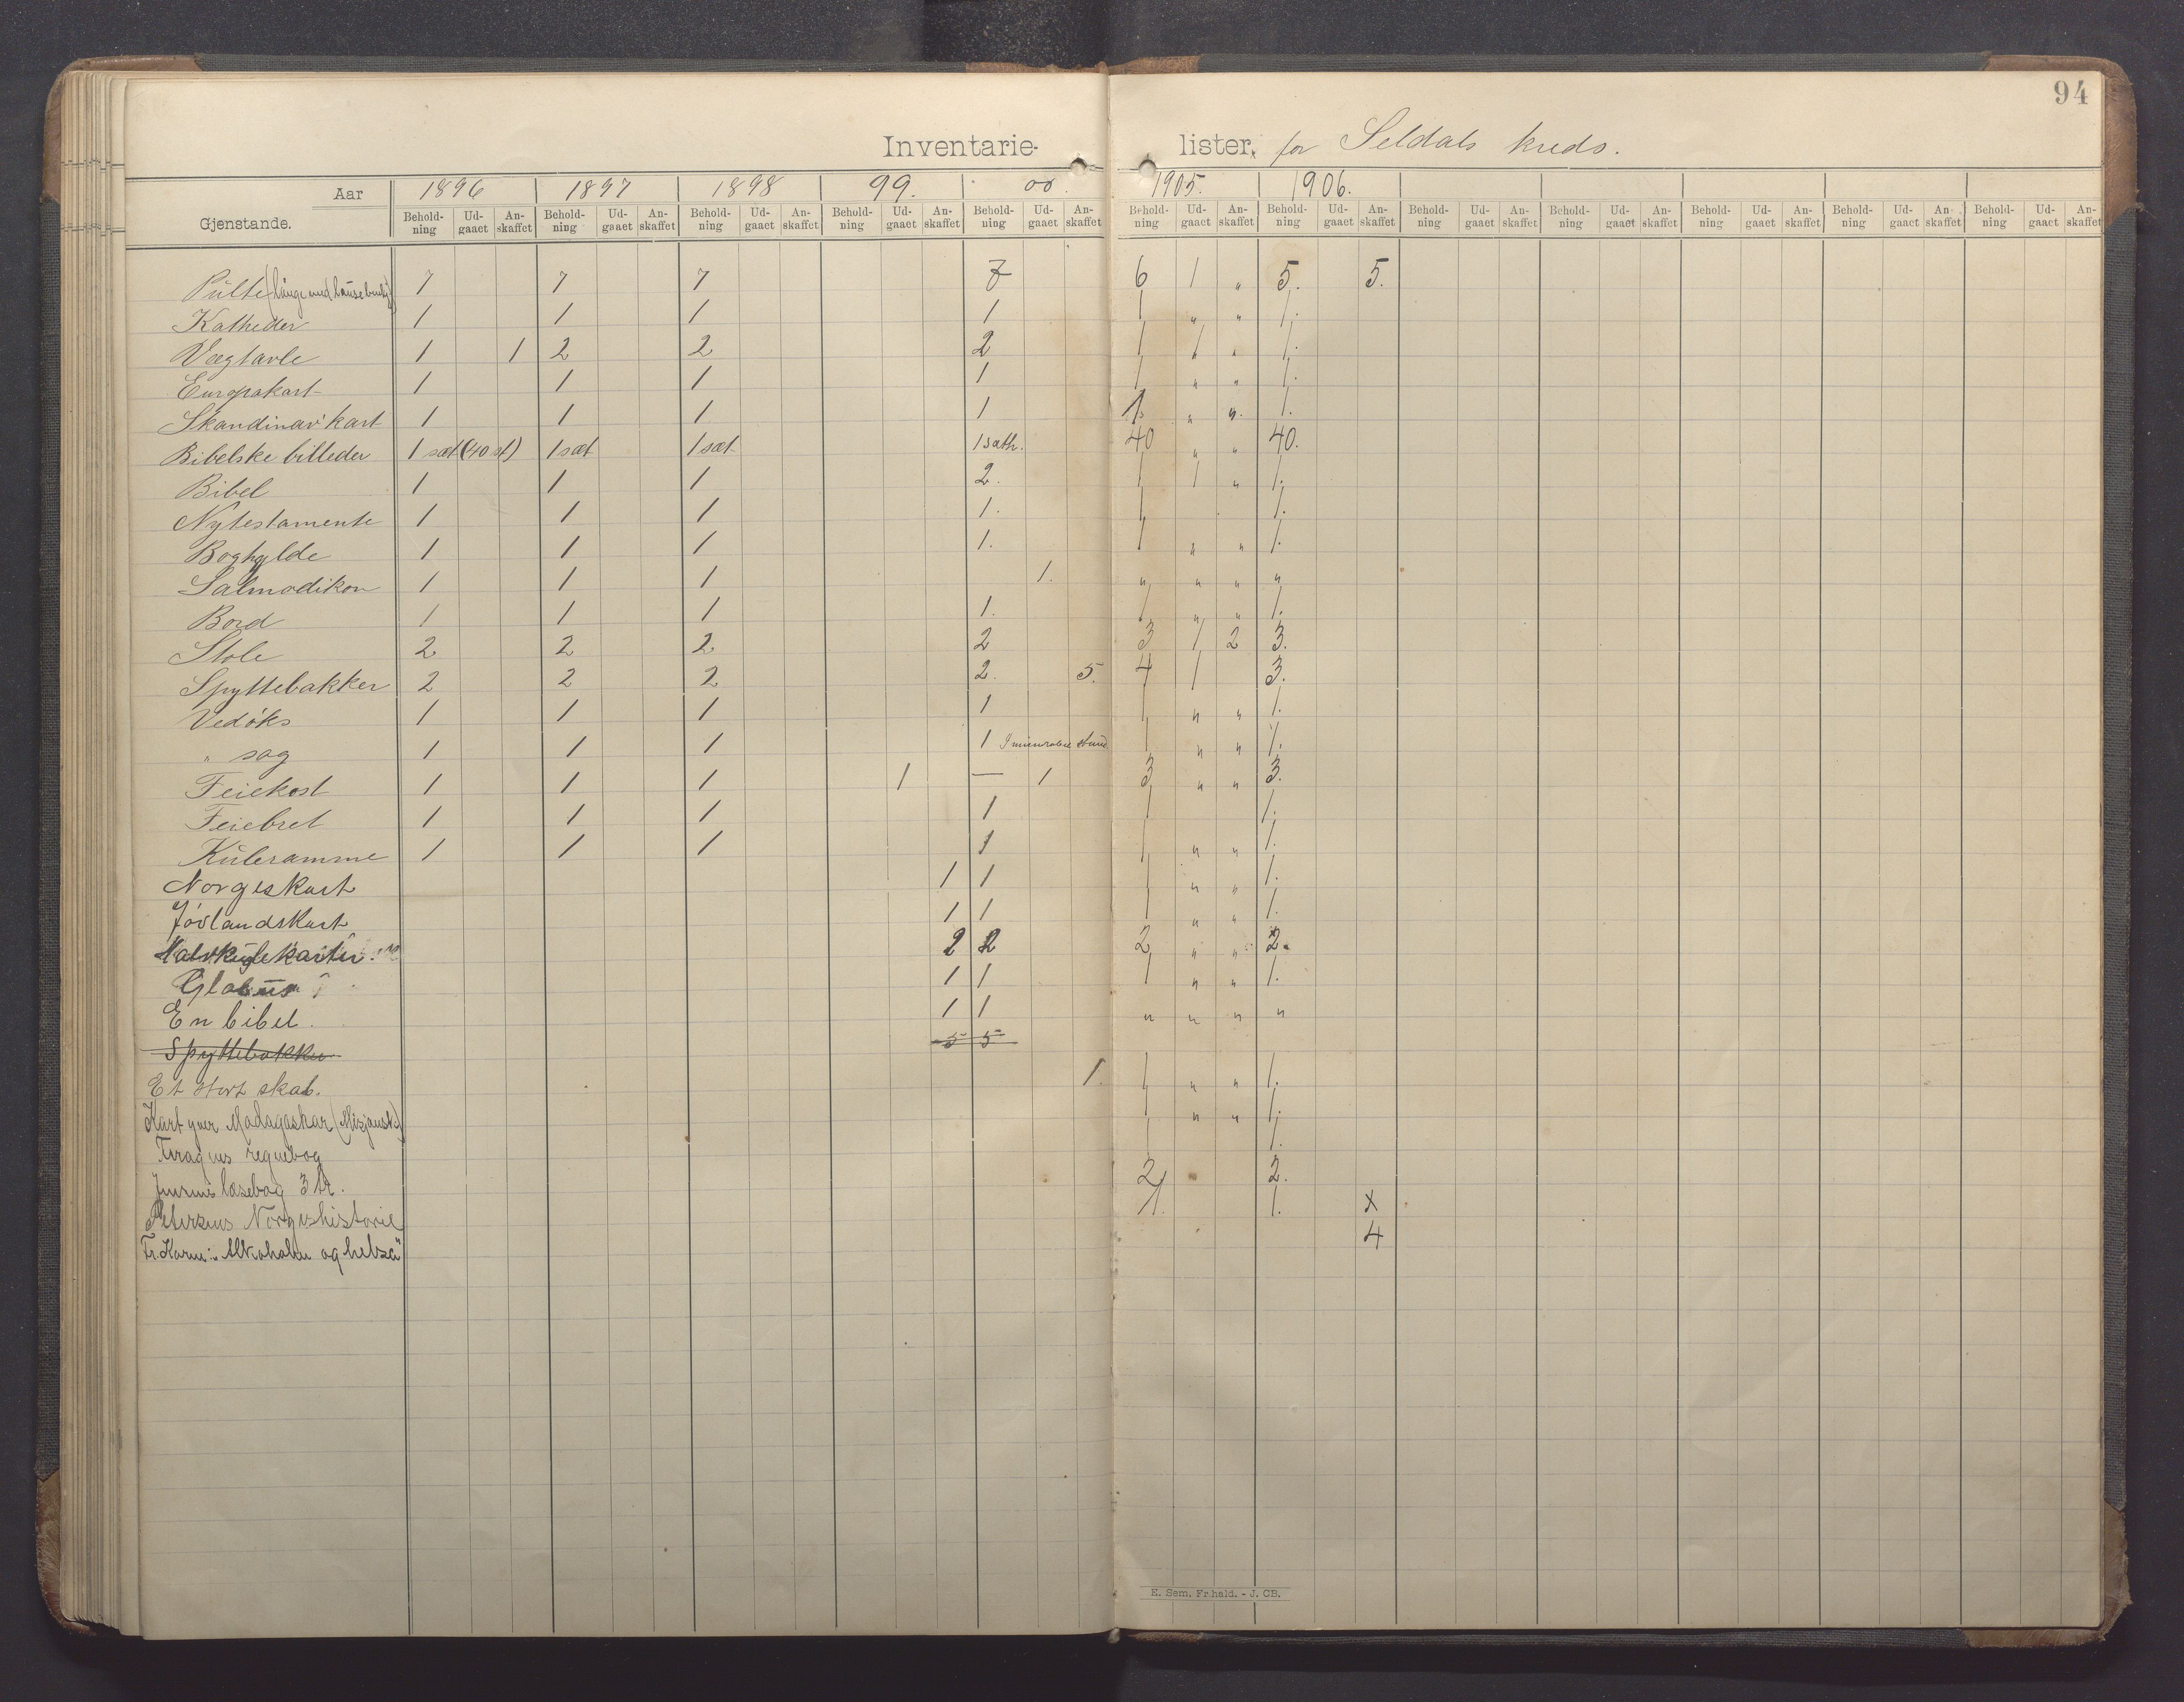 94
Inventarie- lister, for Seldals kreds.
Aar 1896 1897 1898 99. 00. 1905. 1906.
Gjenstande. Behold-ning Ud-gaaet An-skaffet Behold-ning Ud-gaaet An-skaffet Behold-ning Ud-gaaet An-skaffet Behold-ning Ud-gaaet An-skaffet Behold-ning Ud-gaaet An-skaffet Behold-ning Ud-gaaet An-skaffet Behold-ning Ud-gaaet An-skaffet Behold-ning Ud-gaaet An-skaffet Behold-ning Ud-gaaet An-skaffet Behold-ning Ud-gaaet An-skaffet Behold-ning Ud-gaaet An-skaffet Behold-ning Ud-gaaet An-skaffet
Pulte 7 7 7 7 6 1 " 5. 5.
Katheder 1 1 1 1 1 " " 1.
Vægtavle 1 1 2 2 2 1 1 " 1.
Europakart 1 1 1 1 1 " " 1.
Skandinav' kart 1 1 1 1 1. " ". 1.
Bibelske billeder 1 sæt (40 st) 1 sæt 1 sæt. 1 sæth. 40 " " 40.
Bibel 1 1 1 2. 1 1 " 1.
Nytestamente 1 1 1 1. 1 1.
Boghylde 1 1 1 1. 1 " " 1.
Salmodikon 1 1 1 1. " " " "
Bord 1 1 1 1. 1 " " 1.
Stole 2 2 2 2 3 1 2 3.
Spyttebakker 2 2 2 2. 5. 4 1 3.
Vedöks 1 1 1 1 1 " " 1.
" sag 1 1 1 1 1 " " 1.
Feiekost 1 1 1 1 — 1 3 " " 3.
Feiebret 1 1 1 1 1 1.
Kuleramme 1 1 1 1 1 " " 1.
Norgeskart 1 1 1 " " 1.
Jövlandskart 1 1 1 " " 1.
2 2 2 " " 2.
Globus 1 1 1 " " 1.
En bibel. 1 1 " " " "
Spyttebakker 5 5
Et stort skab. 1. 1 " " 1.
Kart yver Madagaskar (Misjonsk) 1 " " 1.
regnebog 1 1.
læsebog 3 2 2.
Norgeshistorie 1. 1. x
Alkoholen og helsa" 4
E. Sem, Fr.hald. - J. CB.